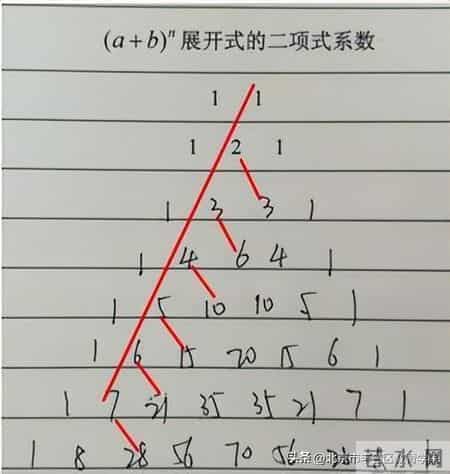 (a+b)ⁿ 展开式的二项式系数
1 1
1 2 1
1 3 3 1
1 4 6 4 1
1 5 10 10 5 1
1 6 15 20 15 6 1
1 7 21 35 35 21 7 1
1 8 28 56 70 56 1